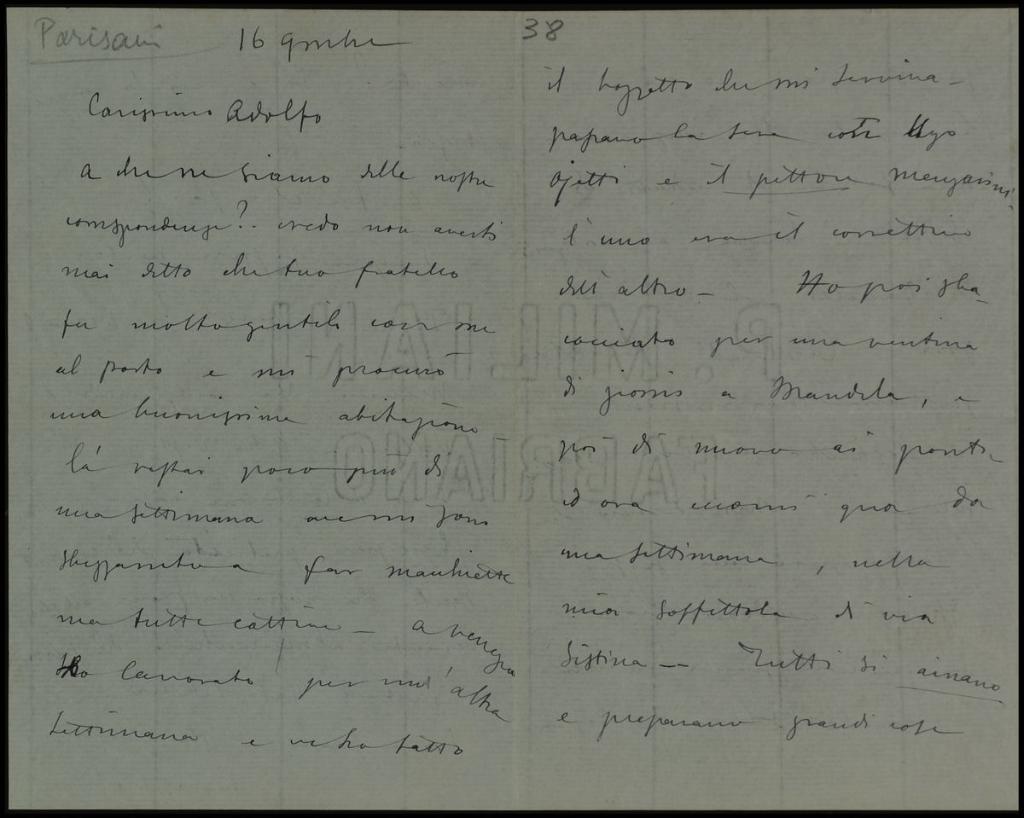 Parisani
16 9mbre
38
Carissimo Adolfo
A che ne siamo delle nostre
corrispondenze?.. credo non averti
mai detto che tuo fratello
fu molto gentile con me
al porto e mi procurò
una buonissima abitazione
là restai poco più di
una settimana ove mi sono
a far macchiette
ma tutte cattive — a Venezia
Ho lavorato per un'altra
settimana e vi ho fatto
il bozzetto che mi serviva —
passavo la sera con Ugo
Ojetti e il pittore
l'uno era il correttivo
dell'altro — Ho poi sba-
cciato per una ventina
di giorni a Mandela, e
poi di nuovo ai
ed ora eccomi qua da
una settimana, nella
mia soffittola di via
Sistina — Tutti si
e preparano grandi cose
P. MILIANI
FABRIANO